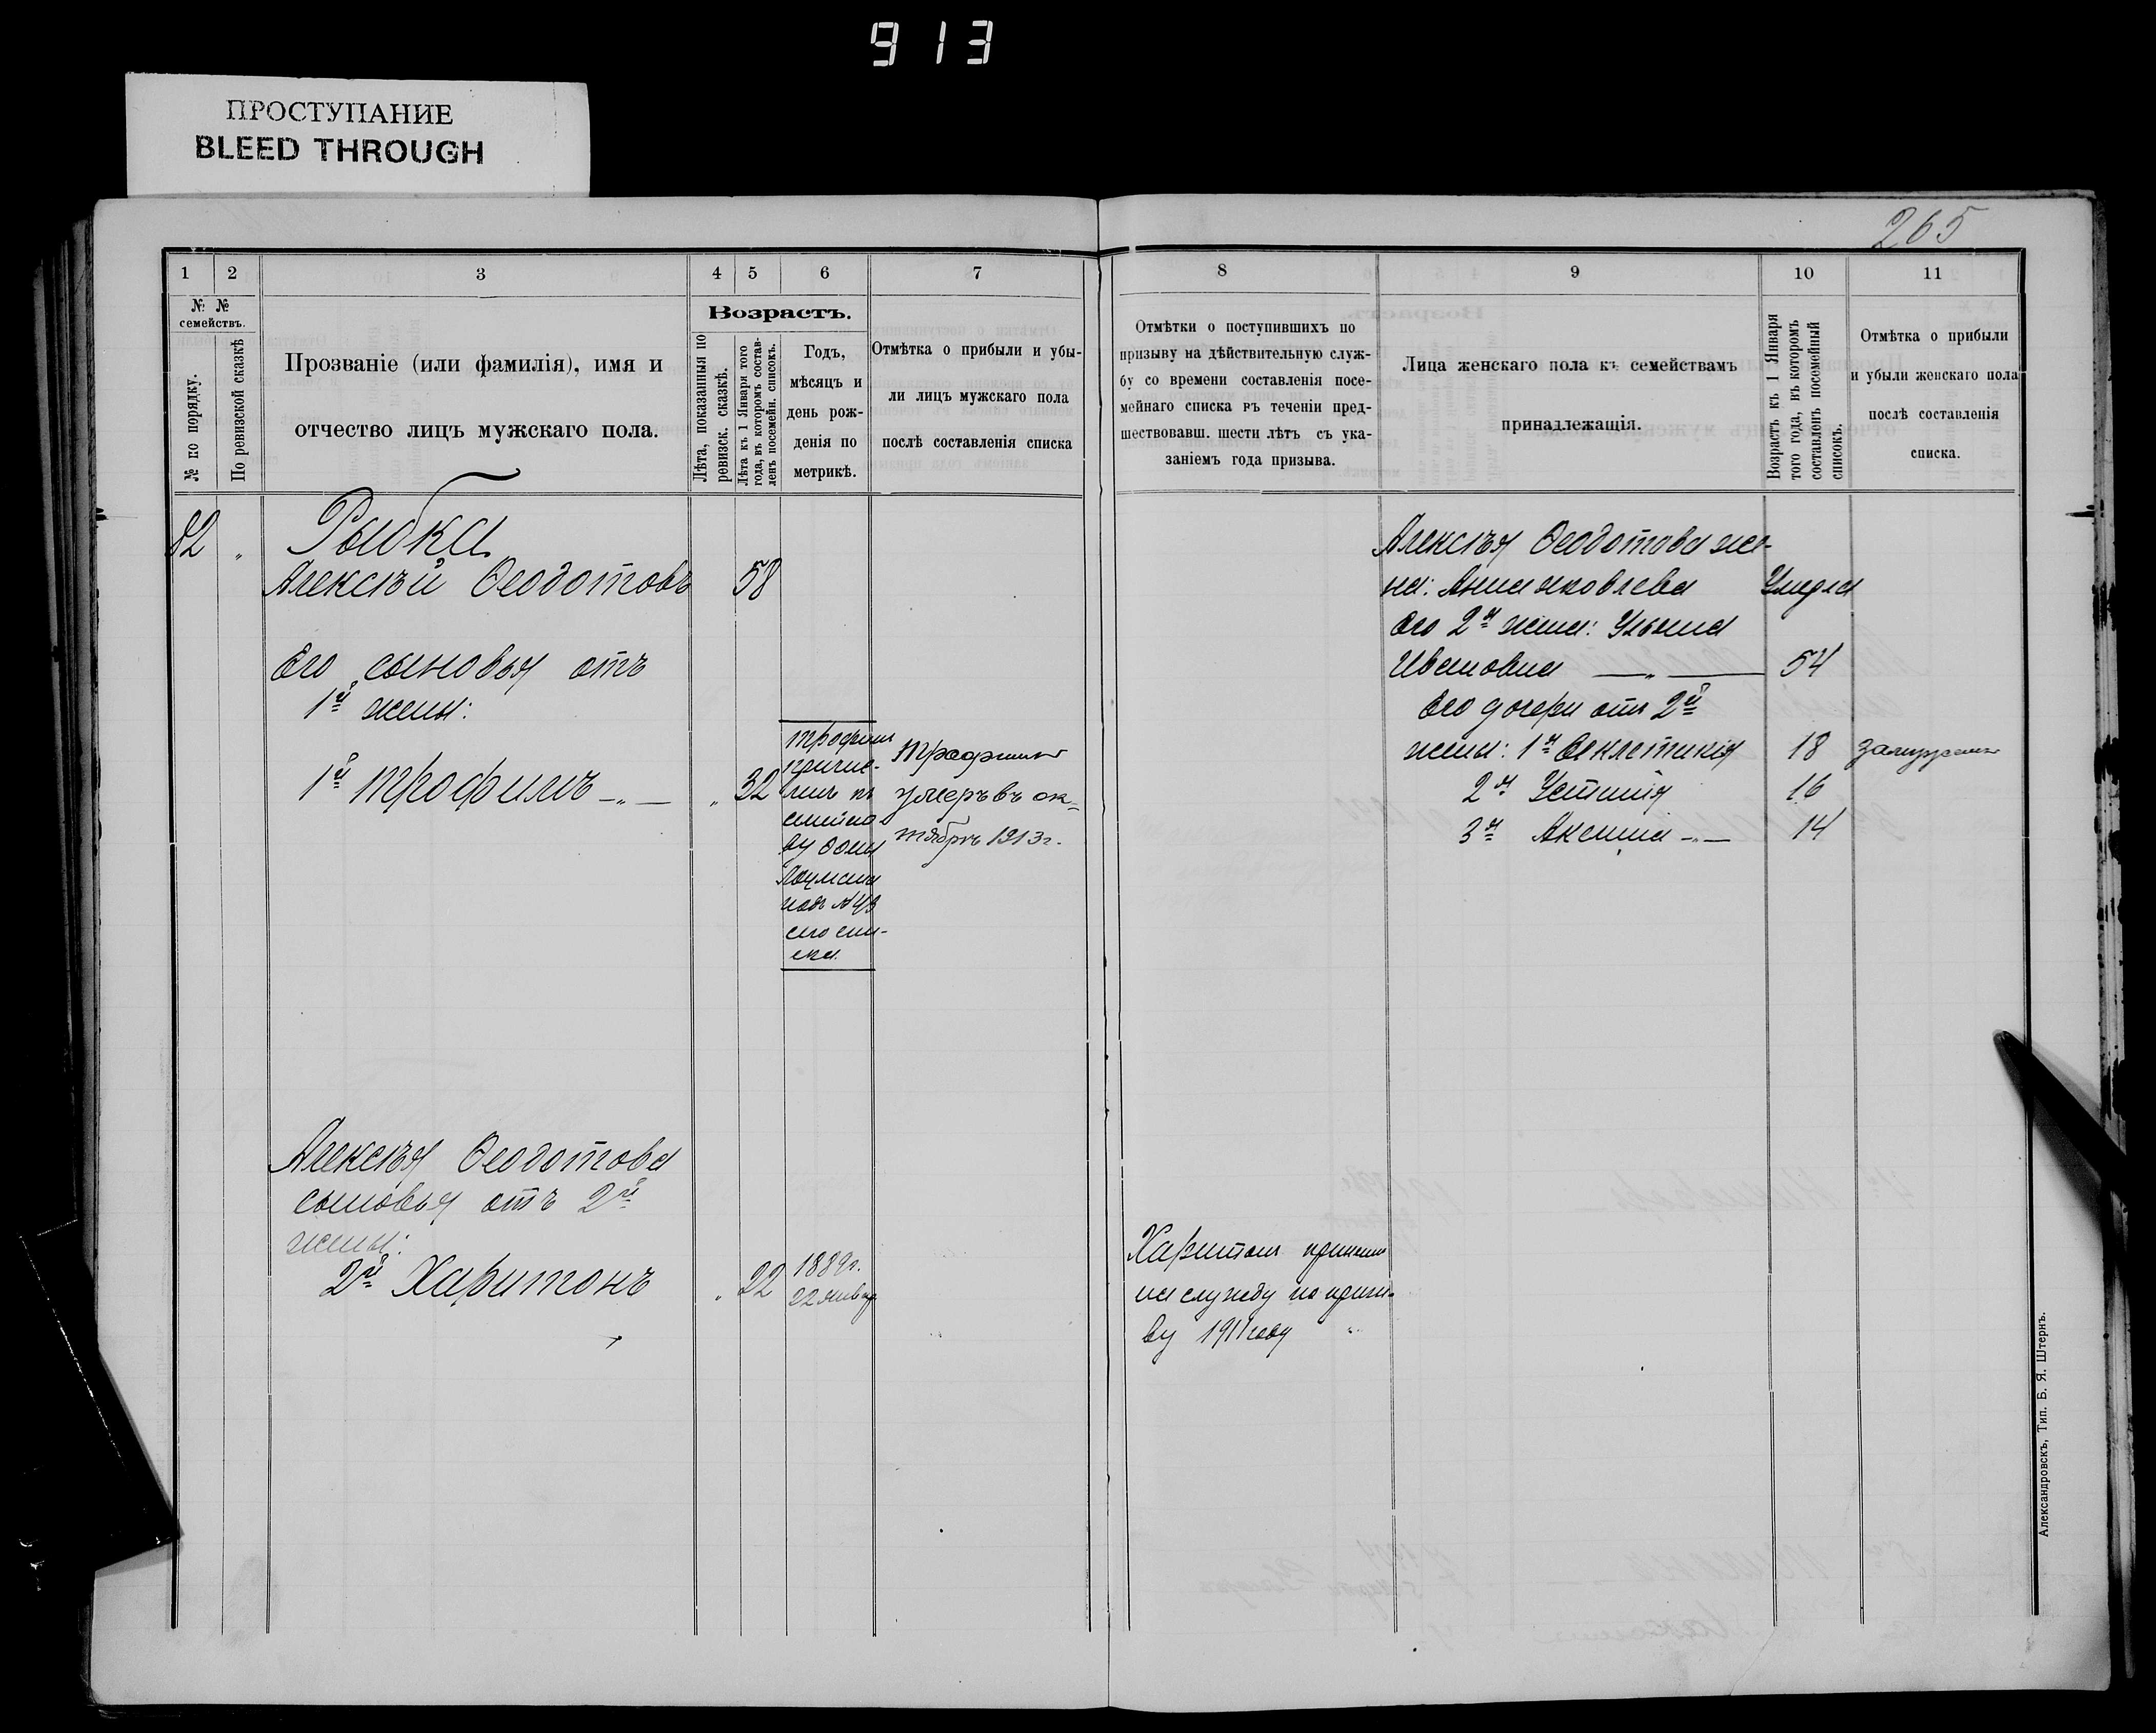 913
ПРОСТУПАНИЕ
BLEED THROUGH
265
1 2 3 4 5 6 7
№ №
семействъ.
№ по порядку.
По ревизской сказкѣ
Прозваніе (или фамилія), имя и
отчество лицъ мужскаго пола.
Возрастъ.
Лѣта, показанныя по
ревизск. сказкѣ.
Лѣта къ 1 Января того
года, въ которомъ состав-
ленъ посемейн. списокъ.
Годъ,
мѣсяцъ и
день рож-
денія по
метрикѣ.
Отмѣтка о прибыли и убы-
ли лицъ мужскаго пола
послѣ составленія списка
82 „ Рыбка
Алексѣй Ѳеодотовъ 58
Его сыновья отъ
1й жены:
1й Трофимъ —„— „ 32
Трофим
причис-
лен къ
семей
ву
подъ №43
сего спи-
ска.
Трофим
умеръ въ ок-
тябрѣ 1913г.
Алексѣя Ѳеодотова
сыновья отъ 2й
жены:
2й Харитонъ „ 22 1889г.
22 январ
8 9 10 11
Отмѣтки о поступившихъ по
призыву на дѣйствительную служ-
бу со времени составленія посе-
мейнаго списка въ теченіи пред-
шествовавш. шести лѣтъ съ ука-
заніемъ года призыва.
Лица женскаго пола къ семействамъ
принадлежащія.
Возрастъ къ 1 Января
того года, въ которомъ
составленъ посемейный
списокъ.
Отмѣтка о прибыли
и убыли женскаго пола
послѣ составленія
списка.
Алексѣя Ѳеодотова же-
на: Анна Яковлева Умерла
Его 2я жена: Ульяна
Ивановна —„— 54
Его дочери отъ 2й
жены: 1я Ѳеклетикія 18 замужем
2я Устинія 16
3я Аксинія —„— 14
Харитон принят
на службу по призы-
ву 1911 году
Александровскъ, Тип. Б. Я. Штернъ.